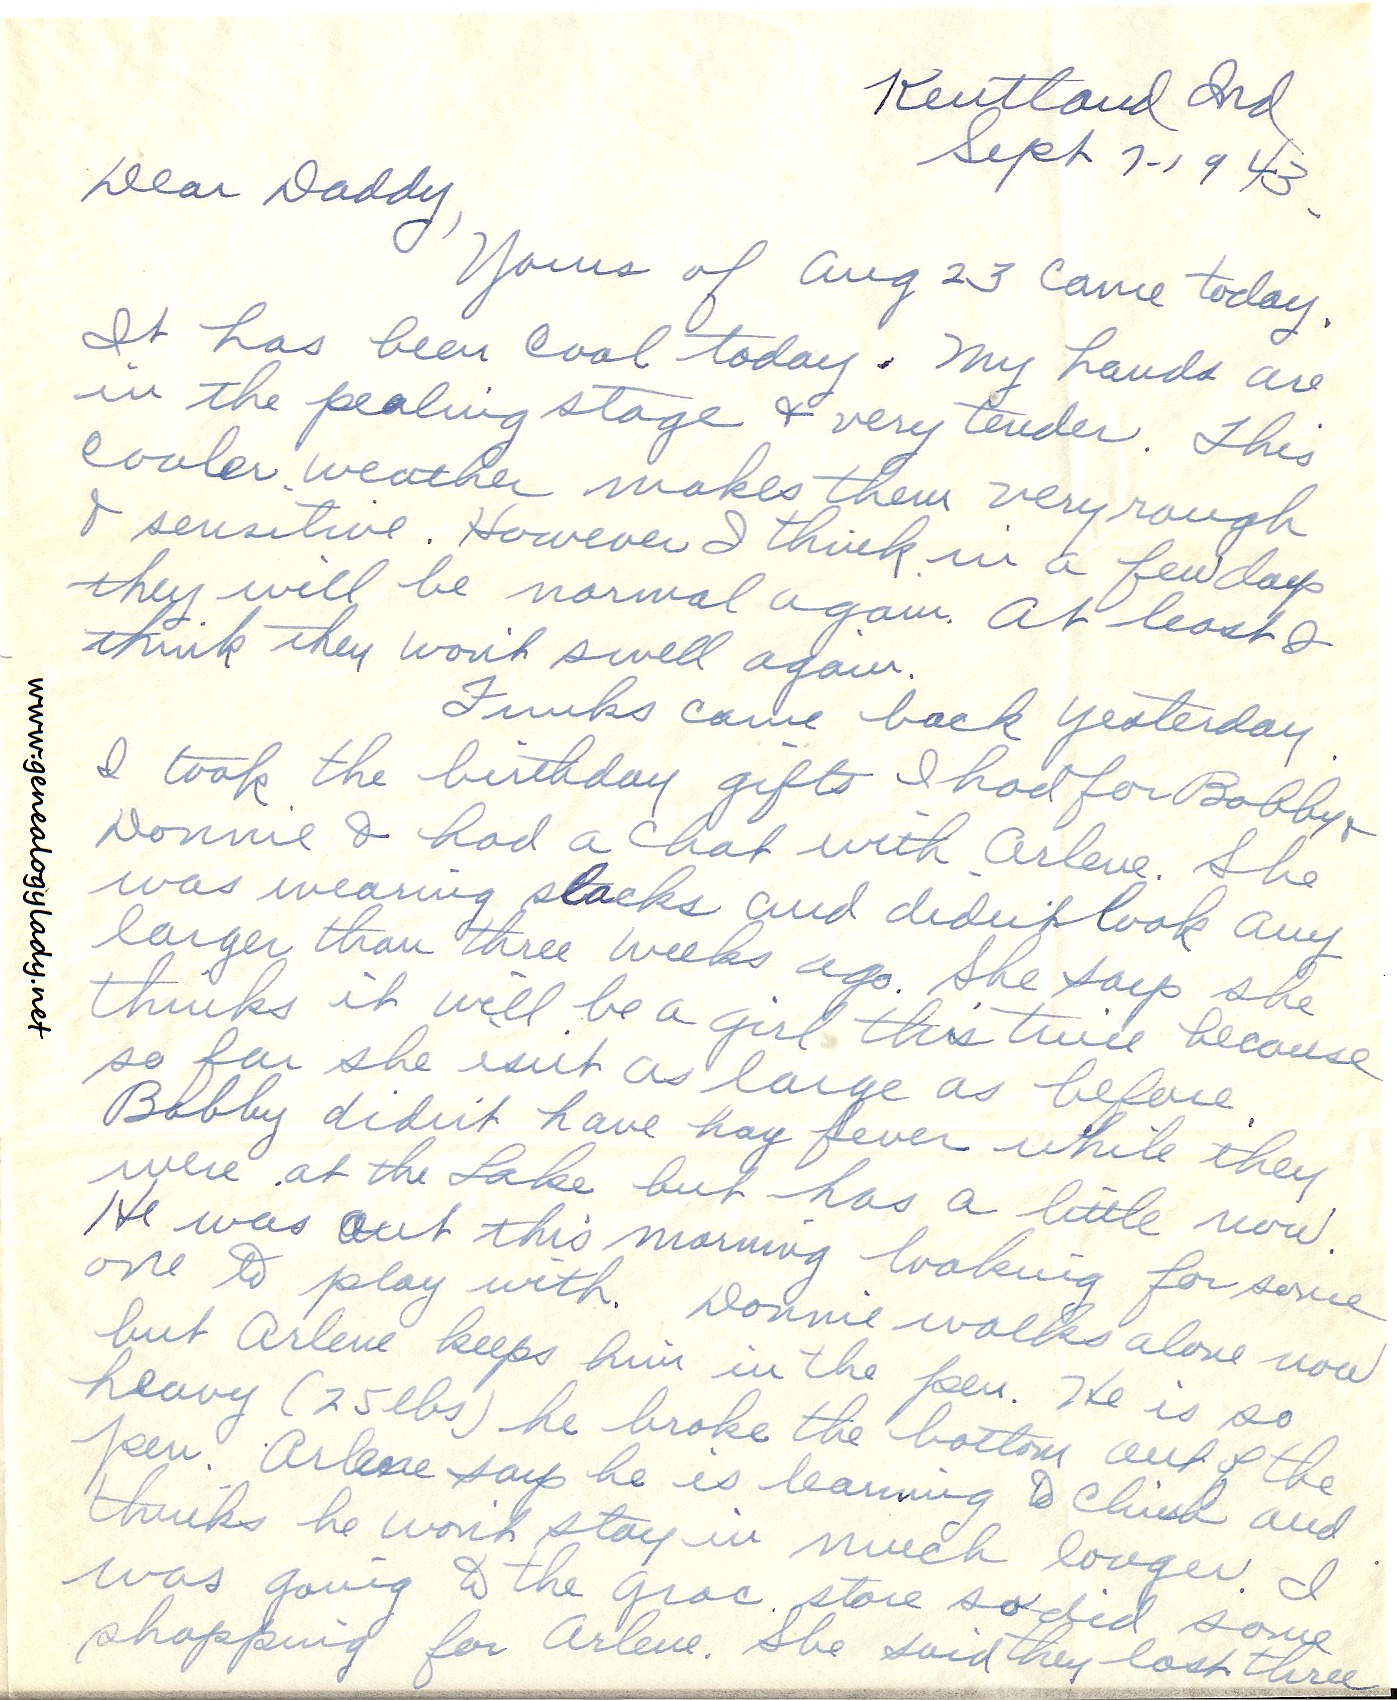 Kentland Ind
Sept 7-1943.
Dear Daddy,
Yours of Aug 23 came today.
It has been cool today. My hands are
in the pealing stage & very tender. This
cooler weather makes them very rough
& sensitive. However I think in a few days
they will be normal again. At least I
think they won't swell again.
Funks came back yesterday.
I took the birthday gifts I had for Bobby &
Donnie & had a chat with Arlene. She
was wearing slacks and didn't look any
larger than three weeks ago. She says she
thinks it will be a girl this time because
so far she isn't as large as before.
Bobby didn't have hay fever while they
were at the Lake but has a little now.
He was out this morning looking for some
one to play with. Donnie walks alone now
but Arlene keeps him in the pen. He is so
heavy (25 lbs) he broke the bottom out of the
pen. Arlene says he is learning to climb and
thinks he won't stay in much longer. I
was going to the groc. store so did some
shopping for Arlene. She said they lost three
www.genealogylady.net